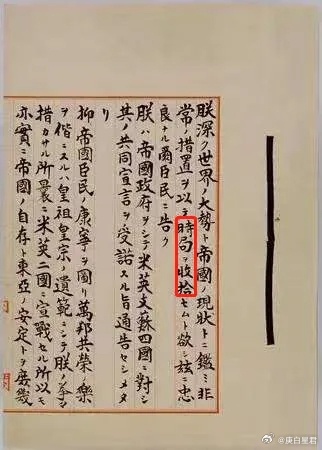 朕深ク世界ノ大勢ト帝國ノ現狀トニ鑑ミ非
常ノ措置ヲ以テ時局ヲ收拾セムト欲シ茲ニ忠
良ナル爾臣民ニ告ク
朕ハ帝國政府ヲシテ米英支蘇四國ニ對シ
其ノ共同宣言ヲ受諾スル旨通告セシメタ
リ
抑帝國臣民ノ康寧ヲ圖リ萬邦共榮ノ樂
ヲ偕ニスルハ皇祖皇宗ノ遺範ニシテ朕ノ拳々
措カサル所曩ニ米英二國ニ宣戰セル所以モ
亦實ニ帝國ノ自存ト東亞ノ安定トヲ庶幾
@庚白星君